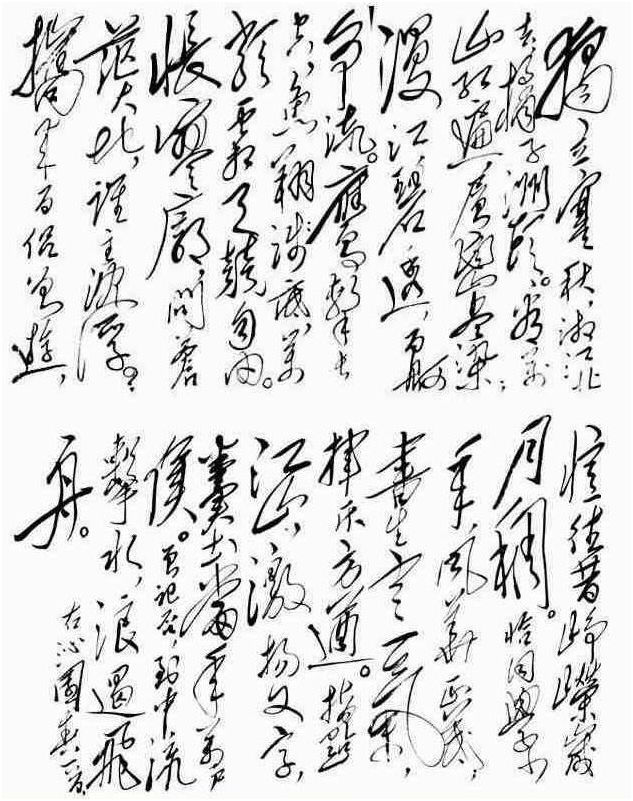 獨立寒秋，湘江北
去，橘子洲頭。看萬
山紅遍，層巒盡染；
漫江碧透，百舸
爭流。鷹擊長
空，魚翔淺底，萬
類霜天競自由。
悵寥廓，問蒼
茫大地，誰主沉浮？
攜來百侶曾遊，
憶往昔崢嶸歲
月稠。恰同學少
年，風華正茂；
書生意氣，
揮斥方遒。指點
江山，激揚文字，
糞土當年萬戶
侯。曾記否，到中流
擊水，浪遏飛
舟。
右沁園春一首